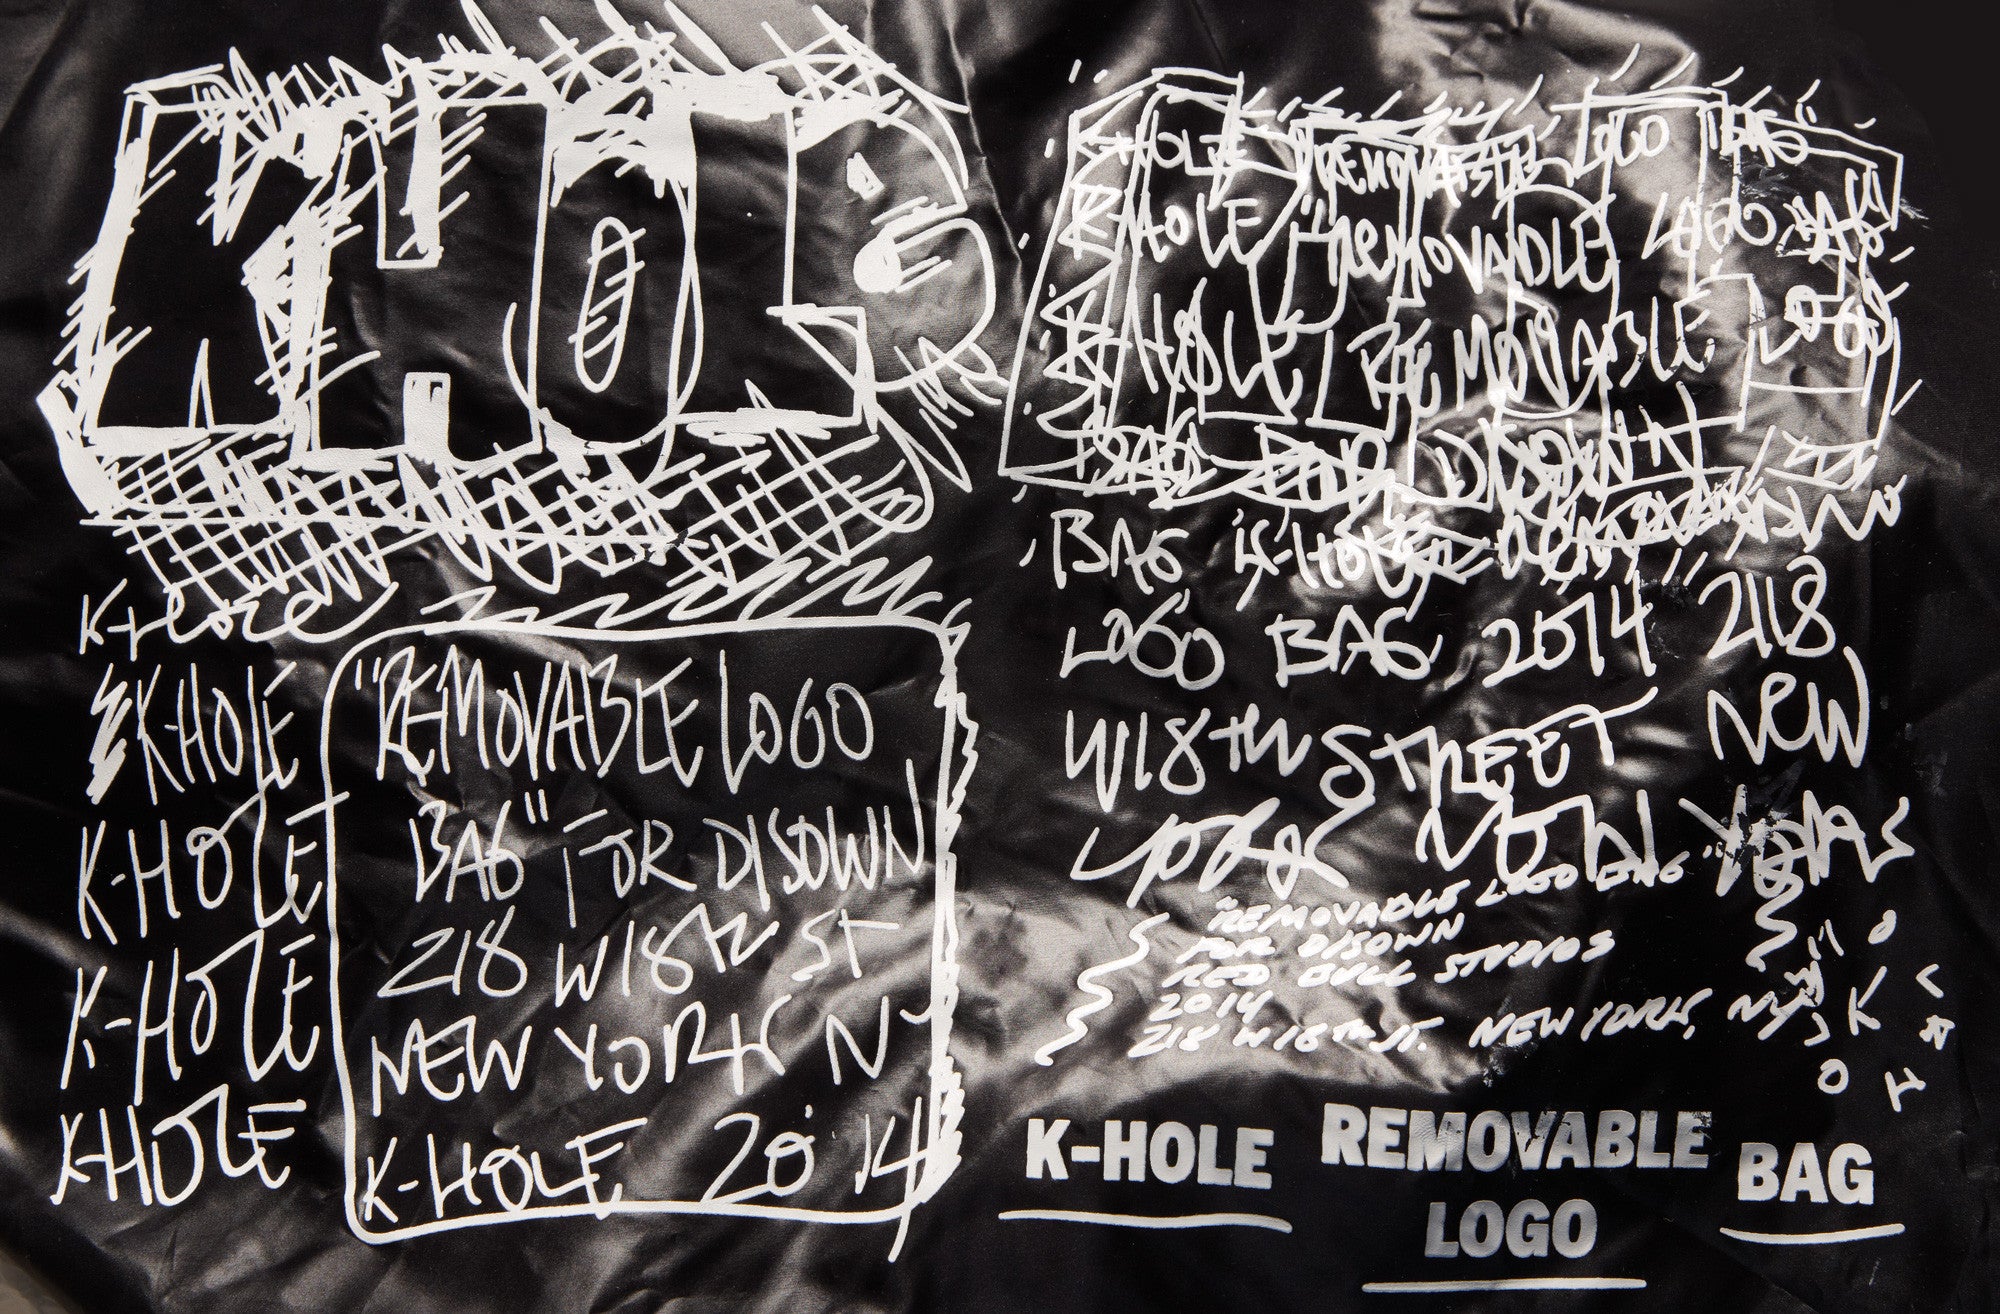 K-HOLE
K-HOLE
K-HOLE
K-HOLE
K-HOLE
"REMOVABLE LOGO
BAG" FOR DISOWN
218 W 18th ST
NEW YORK NY
K-HOLE 2014
K-HOLE "REMOVABLE LOGO BAG"
K-HOLE "REMOVABLE LOGO BAG"
K-HOLE REMOVABLE LOGO
BAG FOR DISOWN
BAG K-HOLE
LOGO BAG 2014 218
W18th STREET NEW
YORK NEW YORK
"REMOVABLE LOGO BAG"
FOR DISOWN
RED BULL STUDIOS
2014
218 W 18TH ST. NEW YORK, NY
K-HOLE REMOVABLE BAG
LOGO